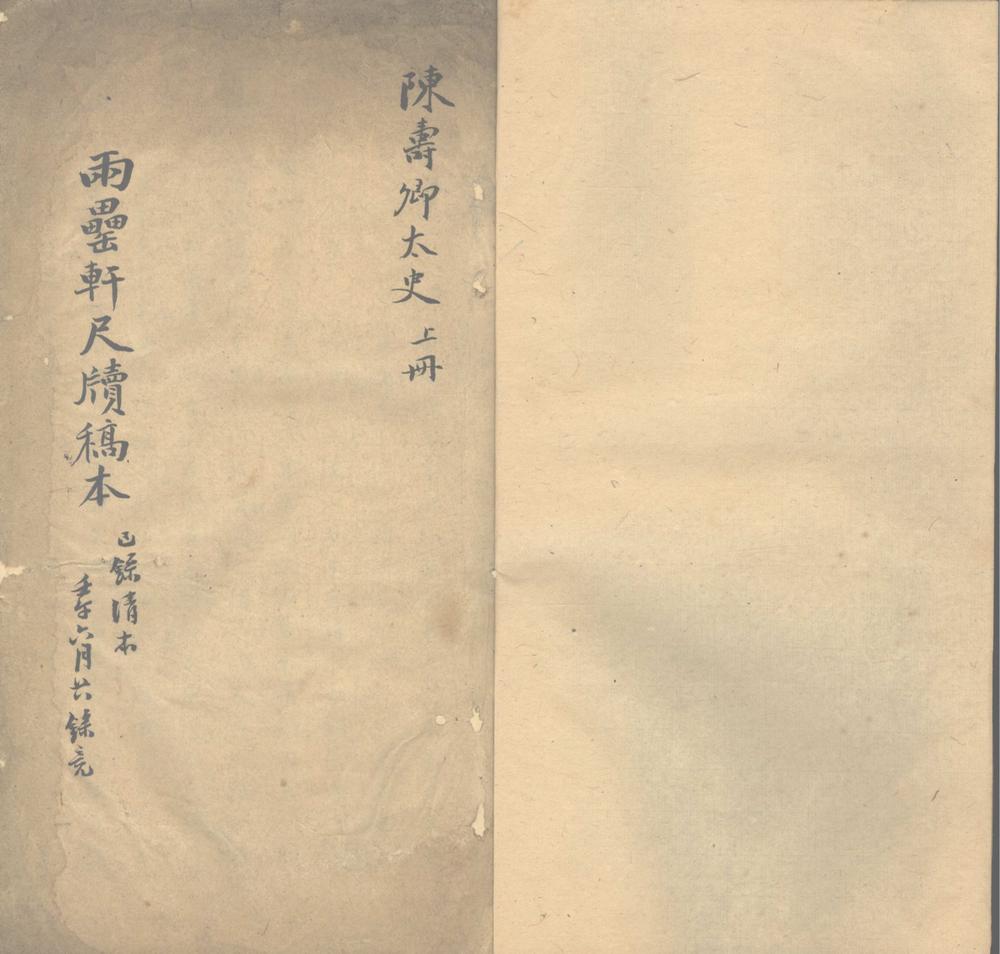 陳壽卿太史 上冊
兩罍軒尺牘稿本
已錄清本
壬午六月廿八錄竟